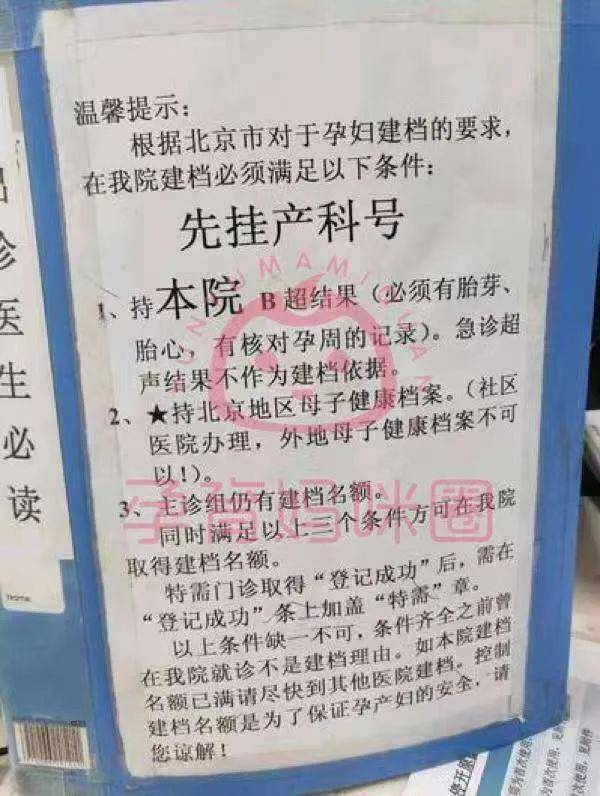 温馨提示：
根据北京市对于孕妇建档的要求，
在我院建档必须满足以下条件：
先挂产科号
1、持本院 B 超结果（必须有胎芽、
胎心，有核对孕周的记录）。急诊超
声结果不作为建档依据。
2、★持北京地区母子健康档案。（社区
医院办理，外地母子健康档案不可
以！）。
3、主诊组仍有建档名额。
同时满足以上三个条件方可在我院
取得建档名额。
特需门诊取得“登记成功”后，需在
“登记成功”条上加盖“特需”章。
以上条件缺一不可，条件齐全之前曾
在我院就诊不是建档理由。如本院建档
名额已满请尽快到其他医院建档。控制
建档名额是为了保证孕产妇的安全，请
您谅解！
诊医生必读
孕育妈咪圈